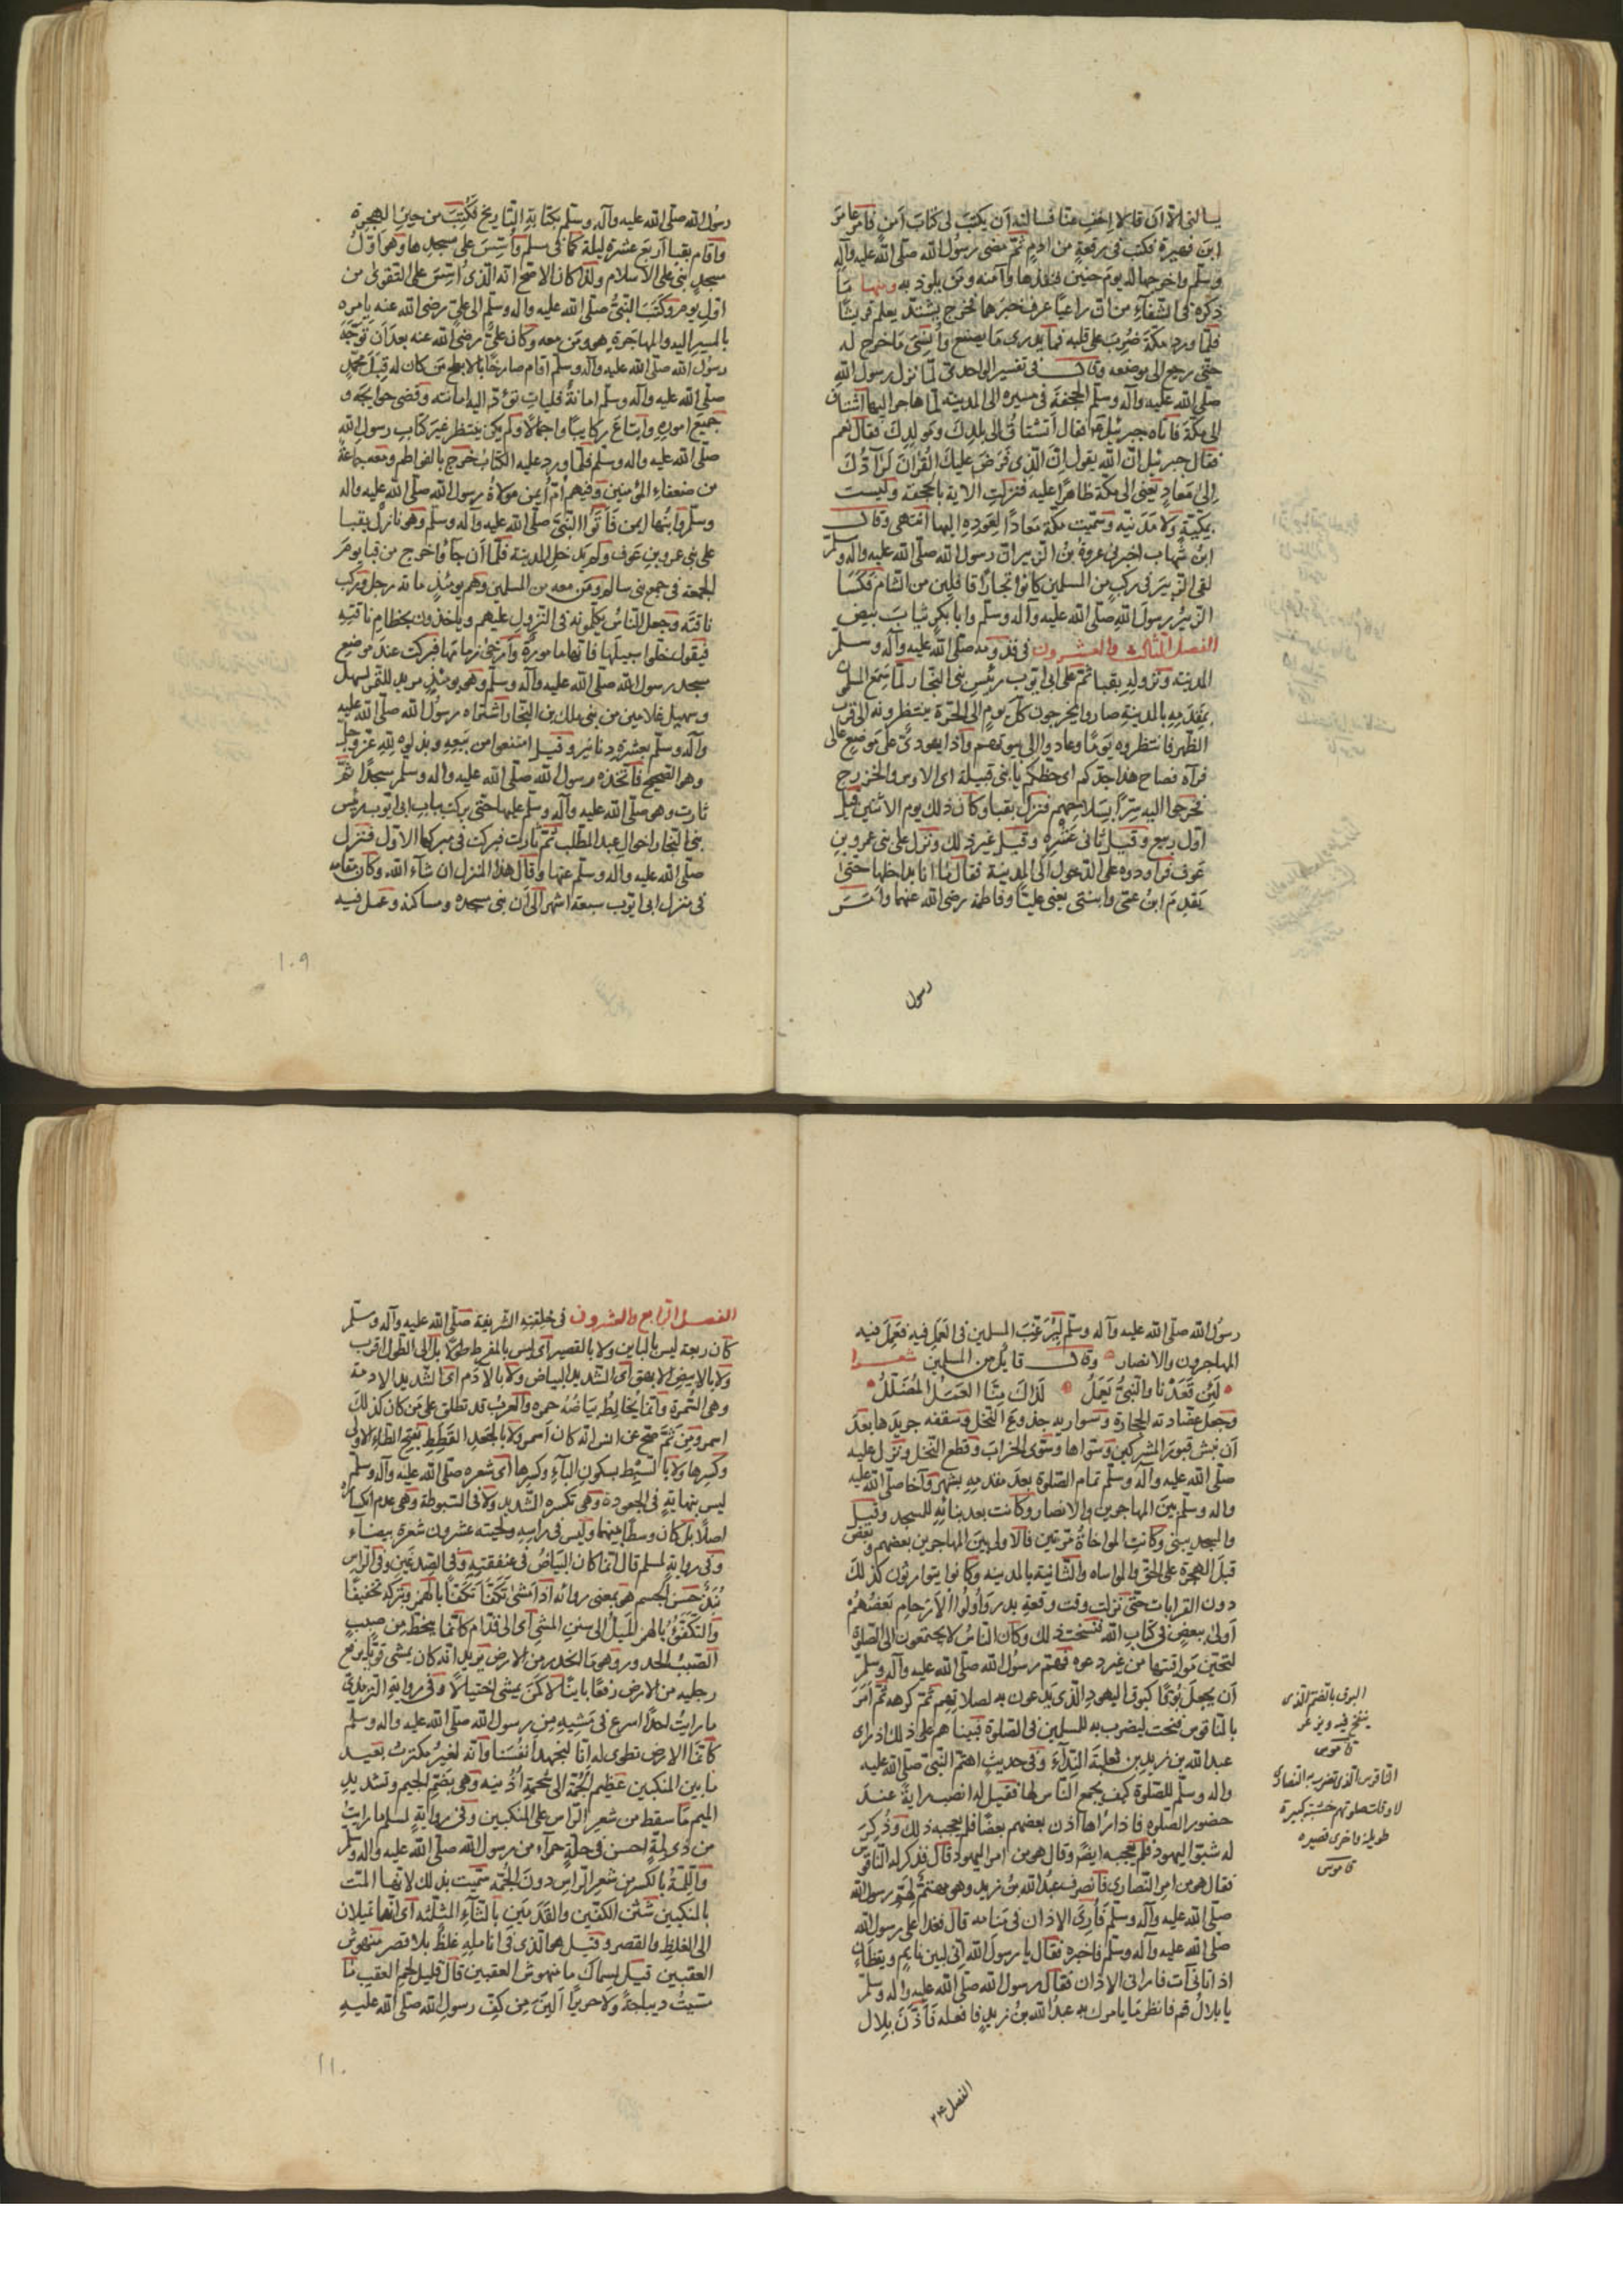 يسألني الا ان قالا اخف عنا فسالته ان يكتب لي كتاب امن فامر عامر
ابن فهيرة فكتب في رقعة من ادم ثم مضى رسول الله صلّى الله عليه وآله
وسلم واخرجها له يوم حنين فنفذها وآمنه ومن يلوذ به ومنها ما
ذكره في الشفاء من ان راعيا عرف خبرهما فخرج يشتد يعلم قريشا
فلما ورد مكة ضرب على قلبه فما يدري ما يصنع وانسي ما خرج له
حتى رجع الى موضعه وقال في تفسير الواحدي لما نزل رسول الله
صلّى الله عليه وآله وسلّم الجحفة في مسيره الى المدينة لما هاجر اليها اشتاق
الى مكة فاتاه جبرئيل فقال اتشتاق الى بلدك ومولدك فقال نعم
فقال جبرئيل ان الله يقول ان الذي فرض عليك القرآن لرادّك
الى معاد يعني الى مكة ظاهرا عليه فنزلت الاية بالجحفة وليست
بمكية ولا مدنية وسميت مكة معادا لعوده اليها انتهى وقال
ابن شهاب اخبرني عروة بن الزبير ان رسول الله صلّى الله عليه وآله وسلّم
لقي الزبير في ركب من المسلمين كانوا تجارا قافلين من الشام فكسا
الزبير رسول الله صلّى الله عليه وآله وسلم وابا بكر ثياب بيض
الفصل الثالث والعشرون في قدومه صلّى الله عليه وآله وسلّم
المدينة ونزوله بقبا ثم على ابي ايوب رئيس بني النجار لما سمع المسلمون
بمقدمه بالمدينة صاروا يخرجون كل يوم الى الحرة ينتظرونه الى قرب
الظهر فانتظروه يوما وعادوا الى بيوتهم واذا يهودي على موضع عالى
فرآه فصاح هذا جدكم اى حظكم يا بني قيلة اى الاوس والخزرج
فخرجوا اليه سراعا بسلاحهم فنزل بقبا وكان ذلك يوم الاثنين قيل
اول ربيع وقيل ثاني عشره وقيل غير ذلك ونزل على بني عمرو بن
عوف فراودوه على الدخول الى المدينة فقال ما انا بداخلها حتى
يقدم ابن عمي وابنتي يعني عليا وفاطمة رضى الله عنهما وامر
رسول
رسول الله صلّى الله عليه وآله وسلّم بكتابة التاريخ فكتب من حين الهجرة
واقام بقبا اربع عشرة ليلة كما في مسلم واسس على مسجدها وهو اول
مسجد بني على الاسلام ولذا كان الاصح انه الذي اسس على التقوى من
اول يوم وكتب النبي صلّى الله عليه وآله وسلّم الى علي رضى الله عنه يامره
بالمسير اليه والمهاجرة هو ومن معه وكان علي رضى الله عنه بعد ان توجه
رسول الله صلّى الله عليه وآله وسلّم اقام صارخا بالابطح من كان له قبل محمد
صلّى الله عليه وآله وسلم امانة فليات تؤد اليه امانته وقضى حوايجه و
جميع اموره وابتاع ركايبا واجمالا ولم يكن ينتظر غير كتاب رسول الله
صلّى الله عليه وآله وسلّم فلما ورد عليه الكتاب خرج بالفواطم ومعه جماعة
من ضعفاء المؤمنين وفيهم ام ايمن مولاة رسول الله صلّى الله عليه وآله
وسلّم وابنها ايمن فاتوا النبي صلّى الله عليه وآله وسلّم وهو نازل بقبا
على بني عمرو بن عوف ولم يدخل المدينة فلما ان جاؤا خرج من قبا يوم
الجمعة في جمع بني سالم ومن معه من المسلمين وهم يومئذ مائة رجل وركب
ناقته وجعل الناس يكلمونه في النزول عليهم وياخذون بخطام ناقته
فيقول خلوا سبيلها فانها مامورة وارخى زمامها فبركت عند موضع
مسجد رسول الله صلّى الله عليه وآله وسلّم وهو يومئذ مربد للتمر لسهل
وسهيل غلامين من بني ملك بن النجار اشتراه رسول الله صلّى الله عليه
وآله وسلّم بعشرة دنانير وقيل امتنعوا من بيعه وبذلوه لله عز وجل
وهو الصحيح فاتخذه رسول الله صلّى الله عليه وآله وسلّم مسجدا ثم
ثارت وهو صلّى الله عليه وآله وسلّم عليها حتى بركت بباب ابي ايوب رئيس
بني النجار اخوال عبد المطلب ثم ثارت فبركت في مبركها الاول فنزل
صلّى الله عليه وآله وسلّم عنها وقال هذا المنزل ان شآء الله وكان مقامه
في منزل ابي ايوب سبعة اشهر الى ان بنى مسجده ومساكنه وعمل فيه
١٠٩
رسول الله صلّى الله عليه وآله وسلّم ليرغب المسلمين في العمل فيه فعمل فيه
المهاجرون والانصار وقال قايل من المسلمين شعرا
لئن قعدنا والنبيّ يعمل لذاك منا العمل المضلل
وجعل عضادته الحجارة وسواريه جذوع النخل وسقفه جريدها بعد
ان نبش قبور المشركين وسواها وسوى الخراب وقطع النخل ونزل عليه
صلّى الله عليه وآله وسلّم تمام الصلوة بعد مقدمه بشهر وآخا صلّى الله عليه
وآله وسلّم بين المهاجرين والانصار وكانت بعد بنائه للمسجد وقيل
والمسجد يبنى وكانت المواخاة مرتين فالاولى بين المهاجرين بعضهم وبعض
قبل الهجرة على الحق والمواساه والثانية بالمدينة وكانوا يتوارثون كذلك
دون القرابات حتى نزلت وقت وقعة بدر واولوا الارحام بعضهم
اولى ببعض في كتاب الله فنسخت ذلك وكان الناس لا يجتمعون الى الصلوة
لتحين مواقيتها من غير دعوه فهمّ رسول الله صلّى الله عليه وآله وسلّم
ان يجعل بوقا كبوق اليهود الذي يدعون به لصلاتهم ثم كرهه ثم امر
بالناقوس فنحت ليضرب به للمسلمين في الصلوة فبينا هم على ذلك اذ راى
عبد الله بن زيد بن ثعلبة النداء وفي حديث اهتم النبي صلّى الله عليه
وآله وسلّم للصلوة كيف يجمع الناس لها فقيل له انصب راية عند
حضور الصلوة فاذا راوها آذن بعضهم بعضا فلم يعجبه ذلك وذكر
له شبّور اليهود فلم يعجبه ايضا وقال هو من امر اليهود قال فذكر له الناقوس
فقال هو من امر النصارى فانصرف عبد الله بن زيد وهو مهتم لهم رسول الله
صلّى الله عليه وآله وسلّم فاري الاذان في منامه قال فغدا على رسول الله
صلّى الله عليه وآله وسلّم فاخبره فقال يا رسول الله اني لبين نايم ويقظان
اذ اتاني آت فاراني الاذان فقال رسول الله صلّى الله عليه وآله وسلّم
يا بلال قم فانظر ما يامرك به عبد الله بن زيد فافعله فاذّن بلال
البوق بالضم الذي
ينفخ فيه ويزمر
قاموس
الناقوس الذي تضرب به النصارى
لاوقات صلوتهم خشبة كبيرة
طويلة واخرى قصيره
قاموس
الفصل ٢٤
الفصل الرابع والعشرون في خلقته الشريفة صلّى الله عليه وآله وسلّم
كان ربعة ليس بالباين ولا بالقصير اى ليس بالمفرط طولا بل الى الطول اقرب
ولا بالابيض الامهق اى الشديد البياض ولا بالآدم اى الشديد الادمة
وهى السمرة وانما يخالط بياضه حمره والعرب قد تطلق على من كان كذلك
اسمر ومن ثم صح عن انس انه كان اسمر ولا بالجعد القطط بفتح الطاء الاولى
وكسرها ولا بالسبط بسكون الباء وكسرها اى شعره صلّى الله عليه وآله وسلّم
ليس بنهاية في الجعودة وهى تكسره الشديد ولا في السبوطة وهى عدم انكساره
اصلا بل كان وسطا بينهما وليس في راسه ولحيته عشرون شعرة بيضاء
وفي رواية لمسلم قال انما كان البياض في عنفقته وفي الصدغين وفي الراس
نبذ حسن الجسم هو بمعنى روائه اذا مشى تكفّأ تكفّأ بالهمز وبتركه تخفيفا
والتكفؤ بالهمز الميل الى سنن المشي اى الى قدام كانما ينحط من صبب
الصبب الحدور وهو ما انحدر من الارض يريد انه كان يمشى قويا يرفع
رجليه من الارض رفعا باينا لا كمن يمشى اختيالا وفي رواية الترمذي
ما رايت احدا اسرع في مشيه من رسول الله صلّى الله عليه وآله وسلّم
كانما الارض تطوى له انا لنجهد انفسنا وانه لغير مكترث بعيد
ما بين المنكبين عظيم الجمة الى شحمة اذنيه وهى بضم الجيم وتشديد
الميم ما سقط من شعر الراس على المنكبين وفي رواية لمسلم ما رايت
من ذي لمة احسن في حلة حمراء من رسول الله صلّى الله عليه وآله وسلّم
واللمة بالكسر من شعر الراس دون الجمة سميت بذلك لانها المت
بالمنكبين شثن الكفين والقدمين بالثاء المثلثة اى انهما يميلان
الى الغلظ والقصر وقيل هو الذي في انامله غلظ بلا قصر منهوش
العقبين قيل لسماك ما منهوش العقبين قال قليل لحم العقب ما
مسيت ديباجة ولا حريرا الين من كف رسول الله صلّى الله عليه
١١٠